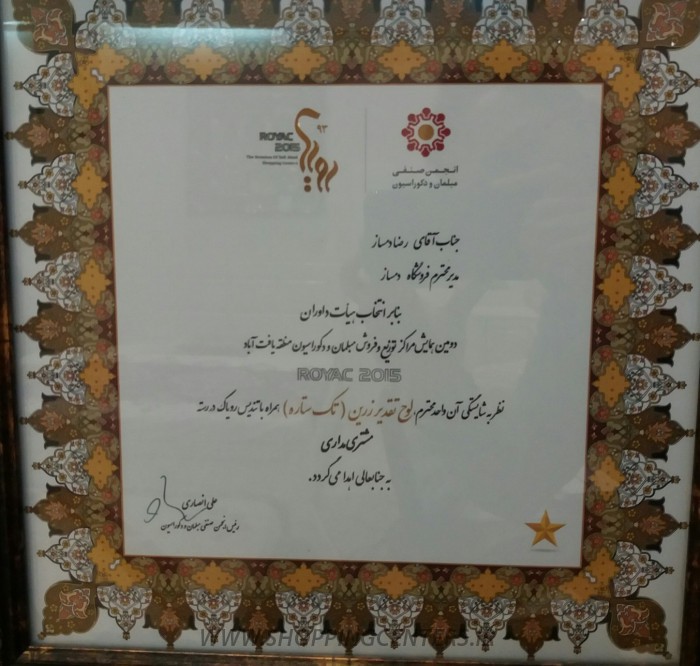 ROYAC
2015
رویاک
۹۳
انجمن صنفی
مبلمان و دکوراسیون
جناب آقای رضا دمساز
مدیر محترم فروشگاه دمساز
بنابر انتخاب هیأت داوران
دومین همایش مراکز توزیع و فروش مبلمان و دکوراسیون منطقه یافت آباد
ROYAC 2015
نظر به شایستگی آن واحد محترم، لوح تقدیر زرین (تک ستاره) همراه با تندیس رویاک در رسته
مشتری مداری
به جنابعالی اهدا می گردد.
علی انصاری
رئیس انجمن صنفی مبلمان و دکوراسیون
WWW.SHOPPINGCENTERS.IR